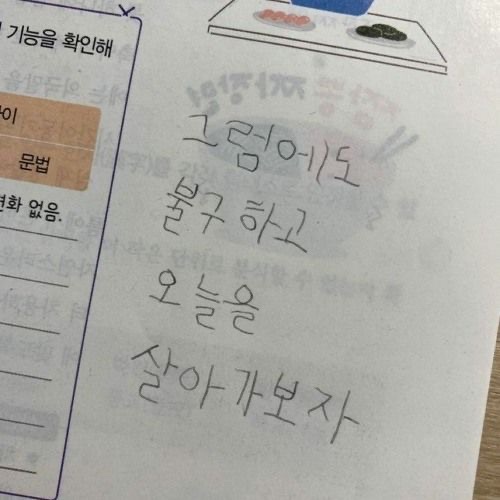 기능을 확인해
문법
변화 없음.
그럼에도
불구하고
오늘을
살아가보자